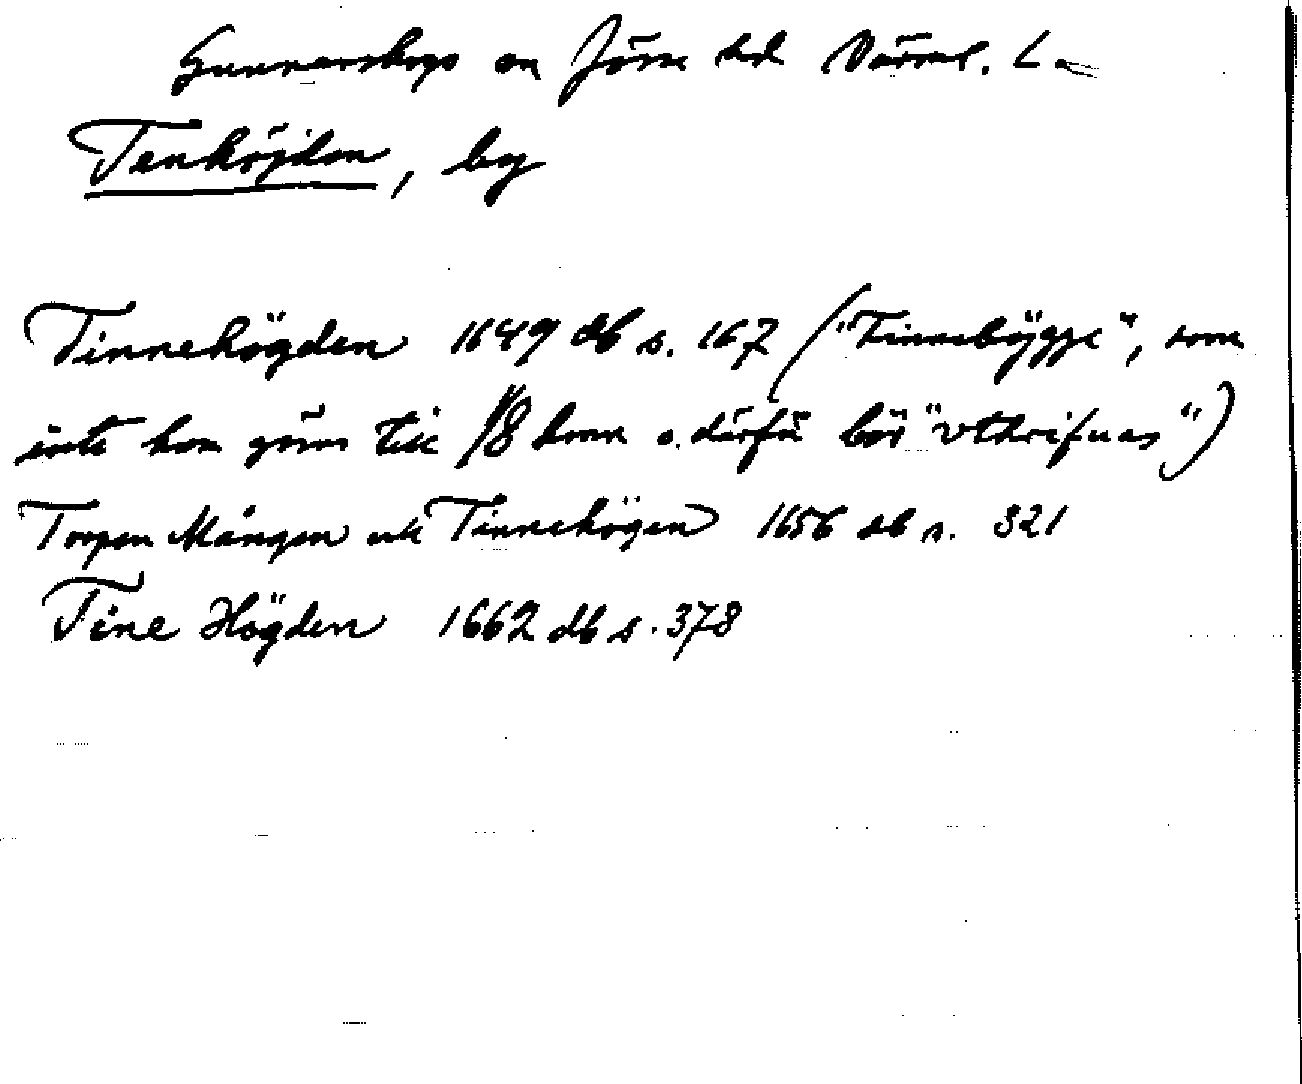 Gunnarskogs sn Jösse hd Värml. L.
Tenhöjden, by
Tinnehögden 1649 db s. 167 ("Tinnebögge", som
inte kan göras till 1/8 hemn o. därför bör "vthrifuas")
Torpen Mången och Tinnehögen 1656 db s. 321
Tine Högden 1662 db s. 378